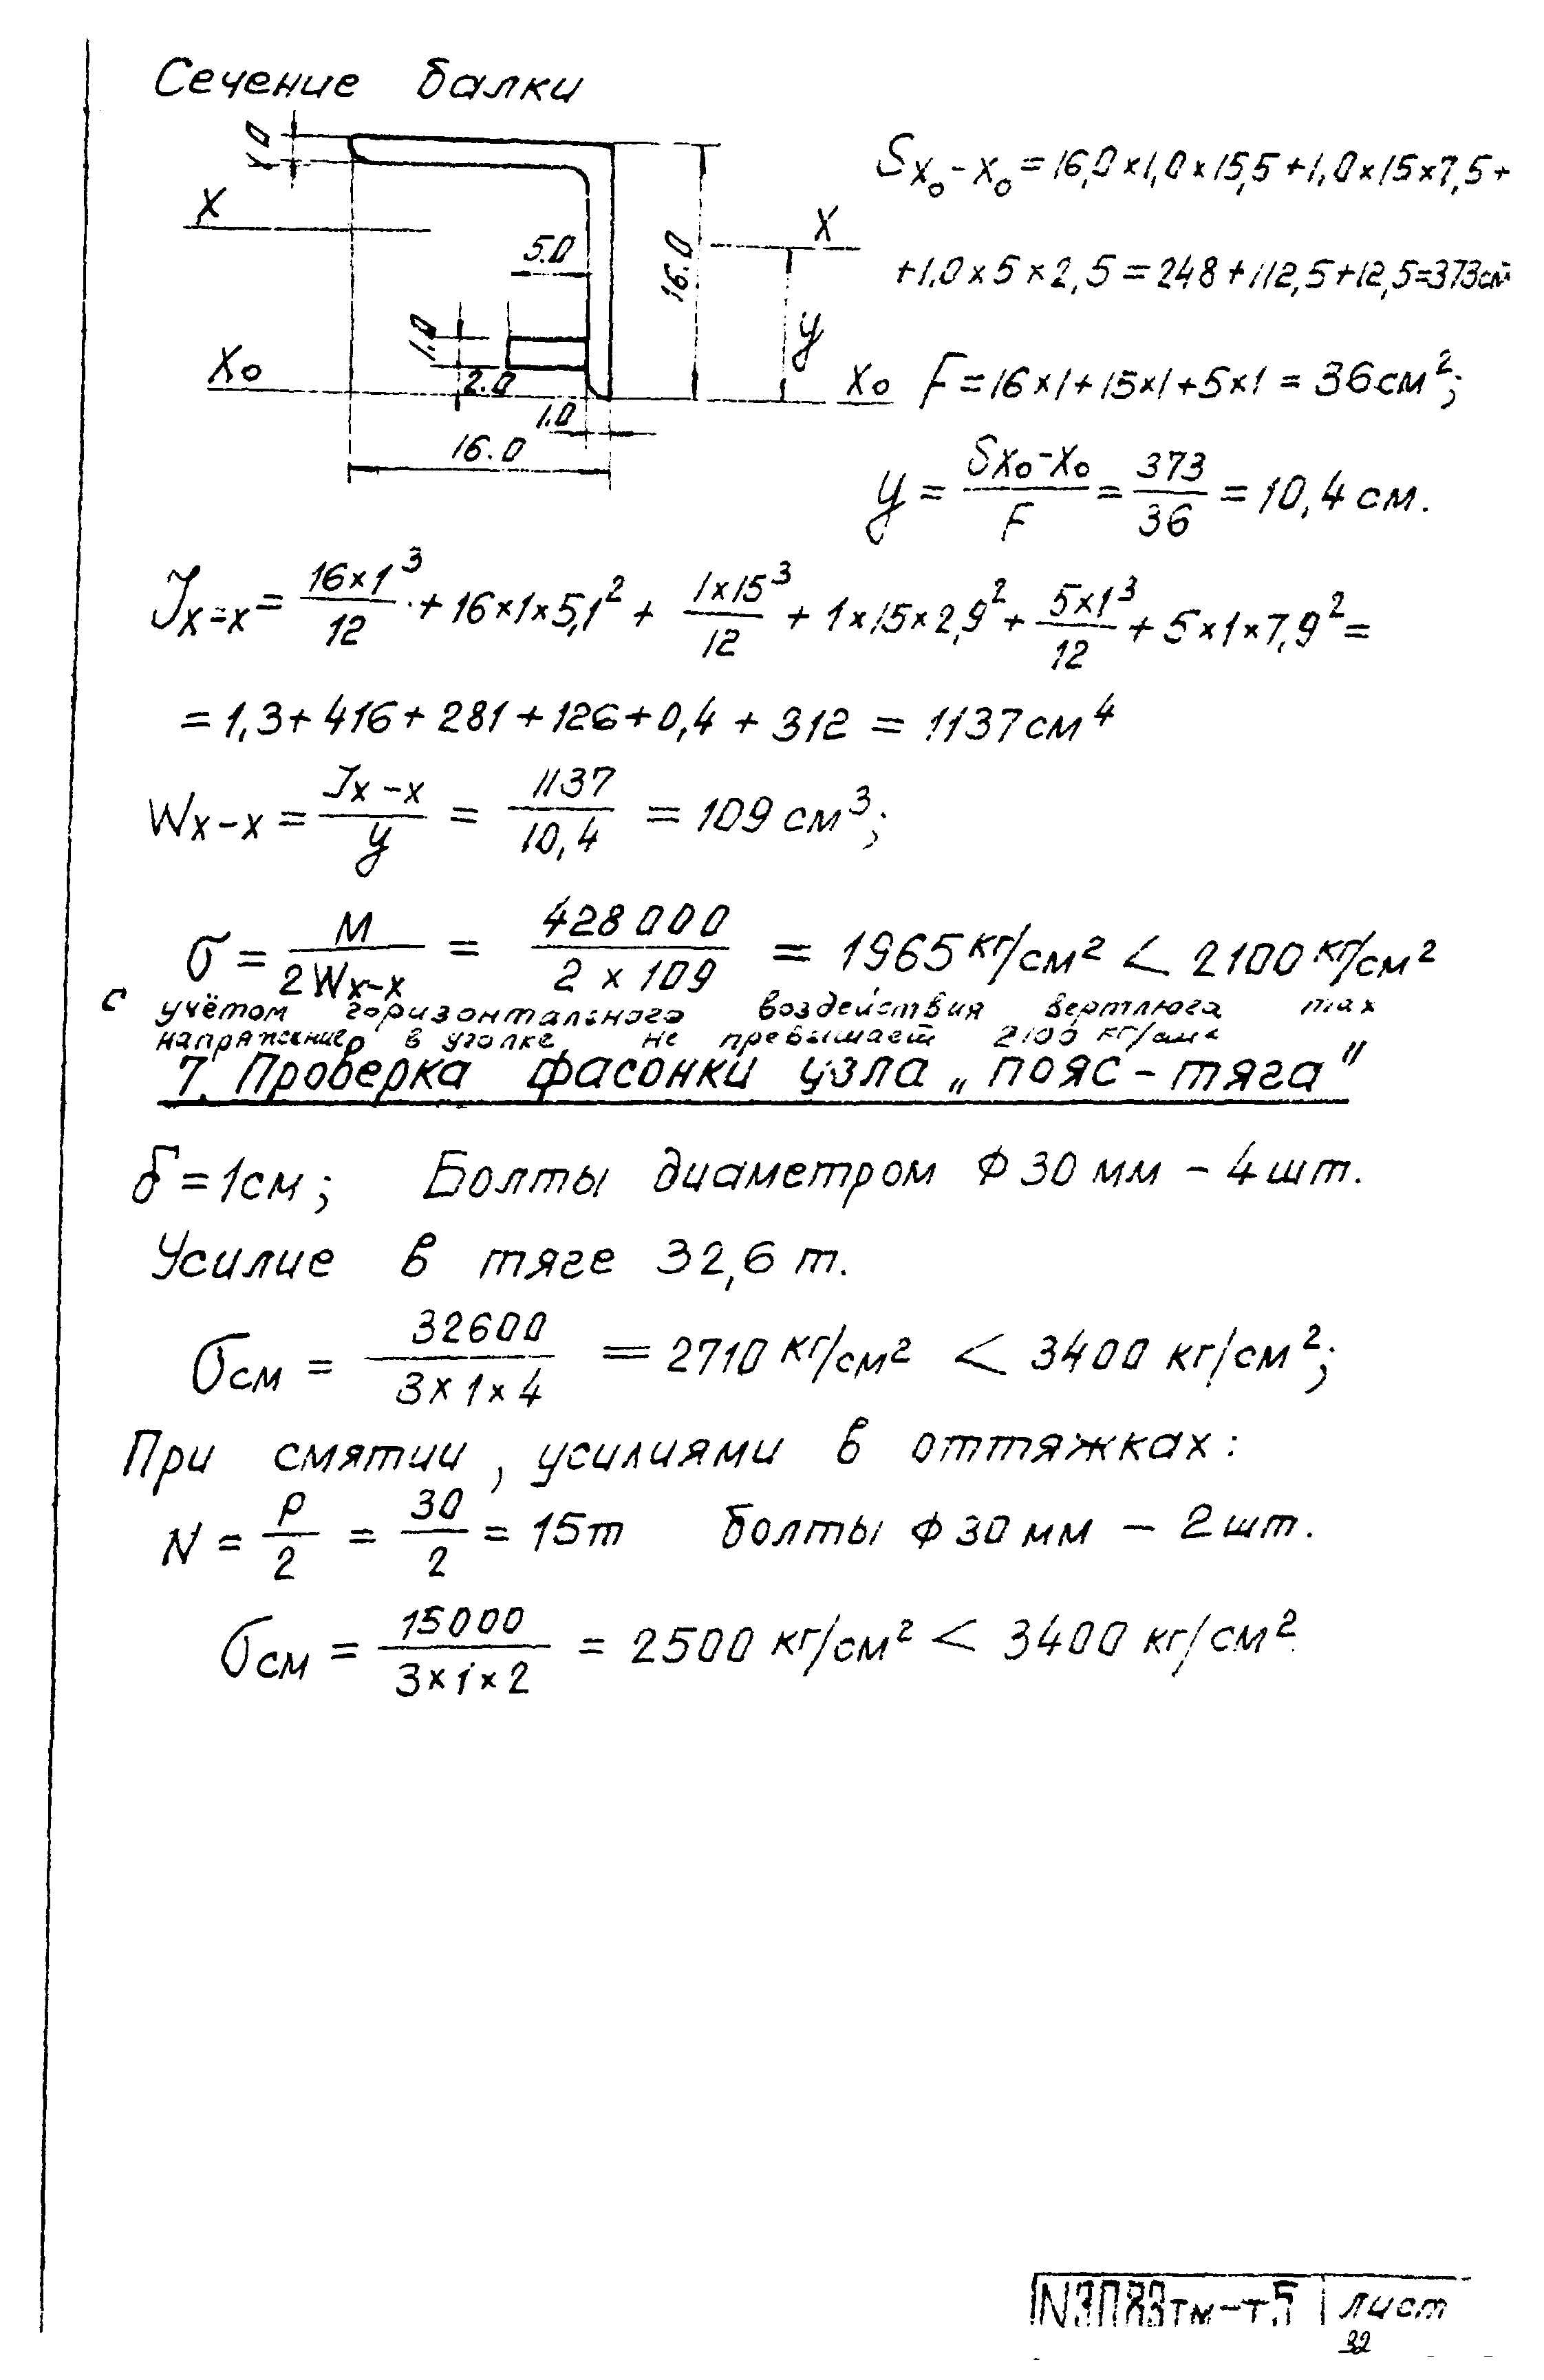 Сечение балки
1.0
X
5.0
16.0
X
y
1.0
2.0
X₀
X₀
1.0
16.0
Sx₀-x₀ = 16,0×1,0×15,5+1,0×15×7,5+
+1.0×5×2,5=248+112,5+12,5=373см
F=16×1+15×1+5×1=36см²;
y = Sx₀-x₀/F = 373/36 = 10,4 см.
Jx-x = 16×1³/12 + 16×1×5,1² + 1×15³/12 + 1×15×2,9² + 5×1³/12 + 5×1×7,9² =
= 1,3+416+281+126+0,4+312 = 1137см⁴
Wx-x = Jx-x/y = 1137/10,4 = 109 см³;
σ = M/2Wx-x = 428000/2×109 = 1965 кг/см² < 2100 кг/см²
с учётом горизонтального воздействия вертлюга max
напряжение в уголке не превышает 2100 кг/см²
7. Проверка фасонки узла „пояс-тяга"
δ=1см; Болты диаметром Φ30мм – 4шт.
Усилие в тяге 32,6 т.
σсм = 32600/3×1×4 = 2710 кг/см² < 3400 кг/см²;
При смятии, усилиями в оттяжках:
N = P/2 = 30/2 = 15т болты Φ30мм – 2шт.
σсм = 15000/3×1×2 = 2500 кг/см² < 3400 кг/см²
N3083тм-т.5 лист
32